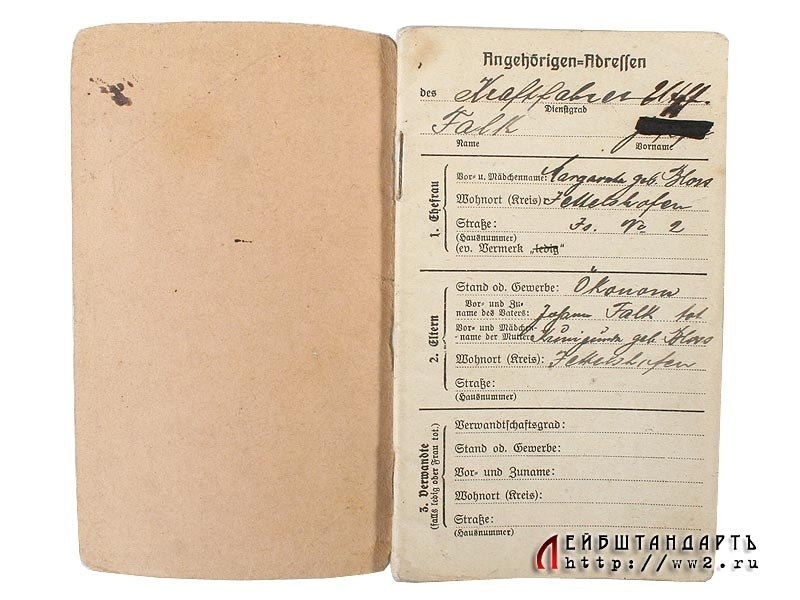 Angehörigen-Adressen
des Kraftfahrer
Dienstgrad
Falk
Name Vorname
1. Ehefrau
Vor- u. Mädchenname: Margareta geb. Kloos
Wohnort (Kreis):
Straße: Hs. No 2
(Hausnummer)
(ev. Vermerk „ledig“
2. Eltern
Stand od. Gewerbe: Ökonom
Vor- und Zu-
name des Vaters: Johann Falk tot
Vor- und Mädchen-
name der Mutter: Kunigunda geb. Kloos
Wohnort (Kreis):
Straße:
(Hausnummer)
3. Verwandte
(falls ledig oder Frau tot.)
Verwandtschaftsgrad:
Stand od. Gewerbe:
Vor- und Zuname:
Wohnort (Kreis):
Straße:
(Hausnummer)
ЛЕЙБШТАНДАРТЪ
http://ww2.ru